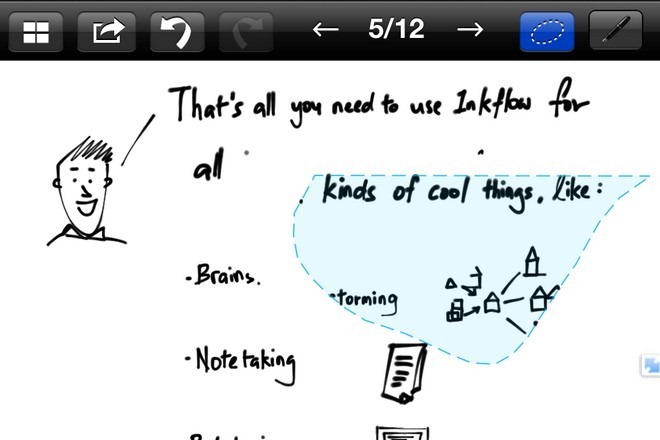 5/12
That's all you need to use Inkflow for
all
kinds of cool things, like:
- Brains.
torming
- Note taking